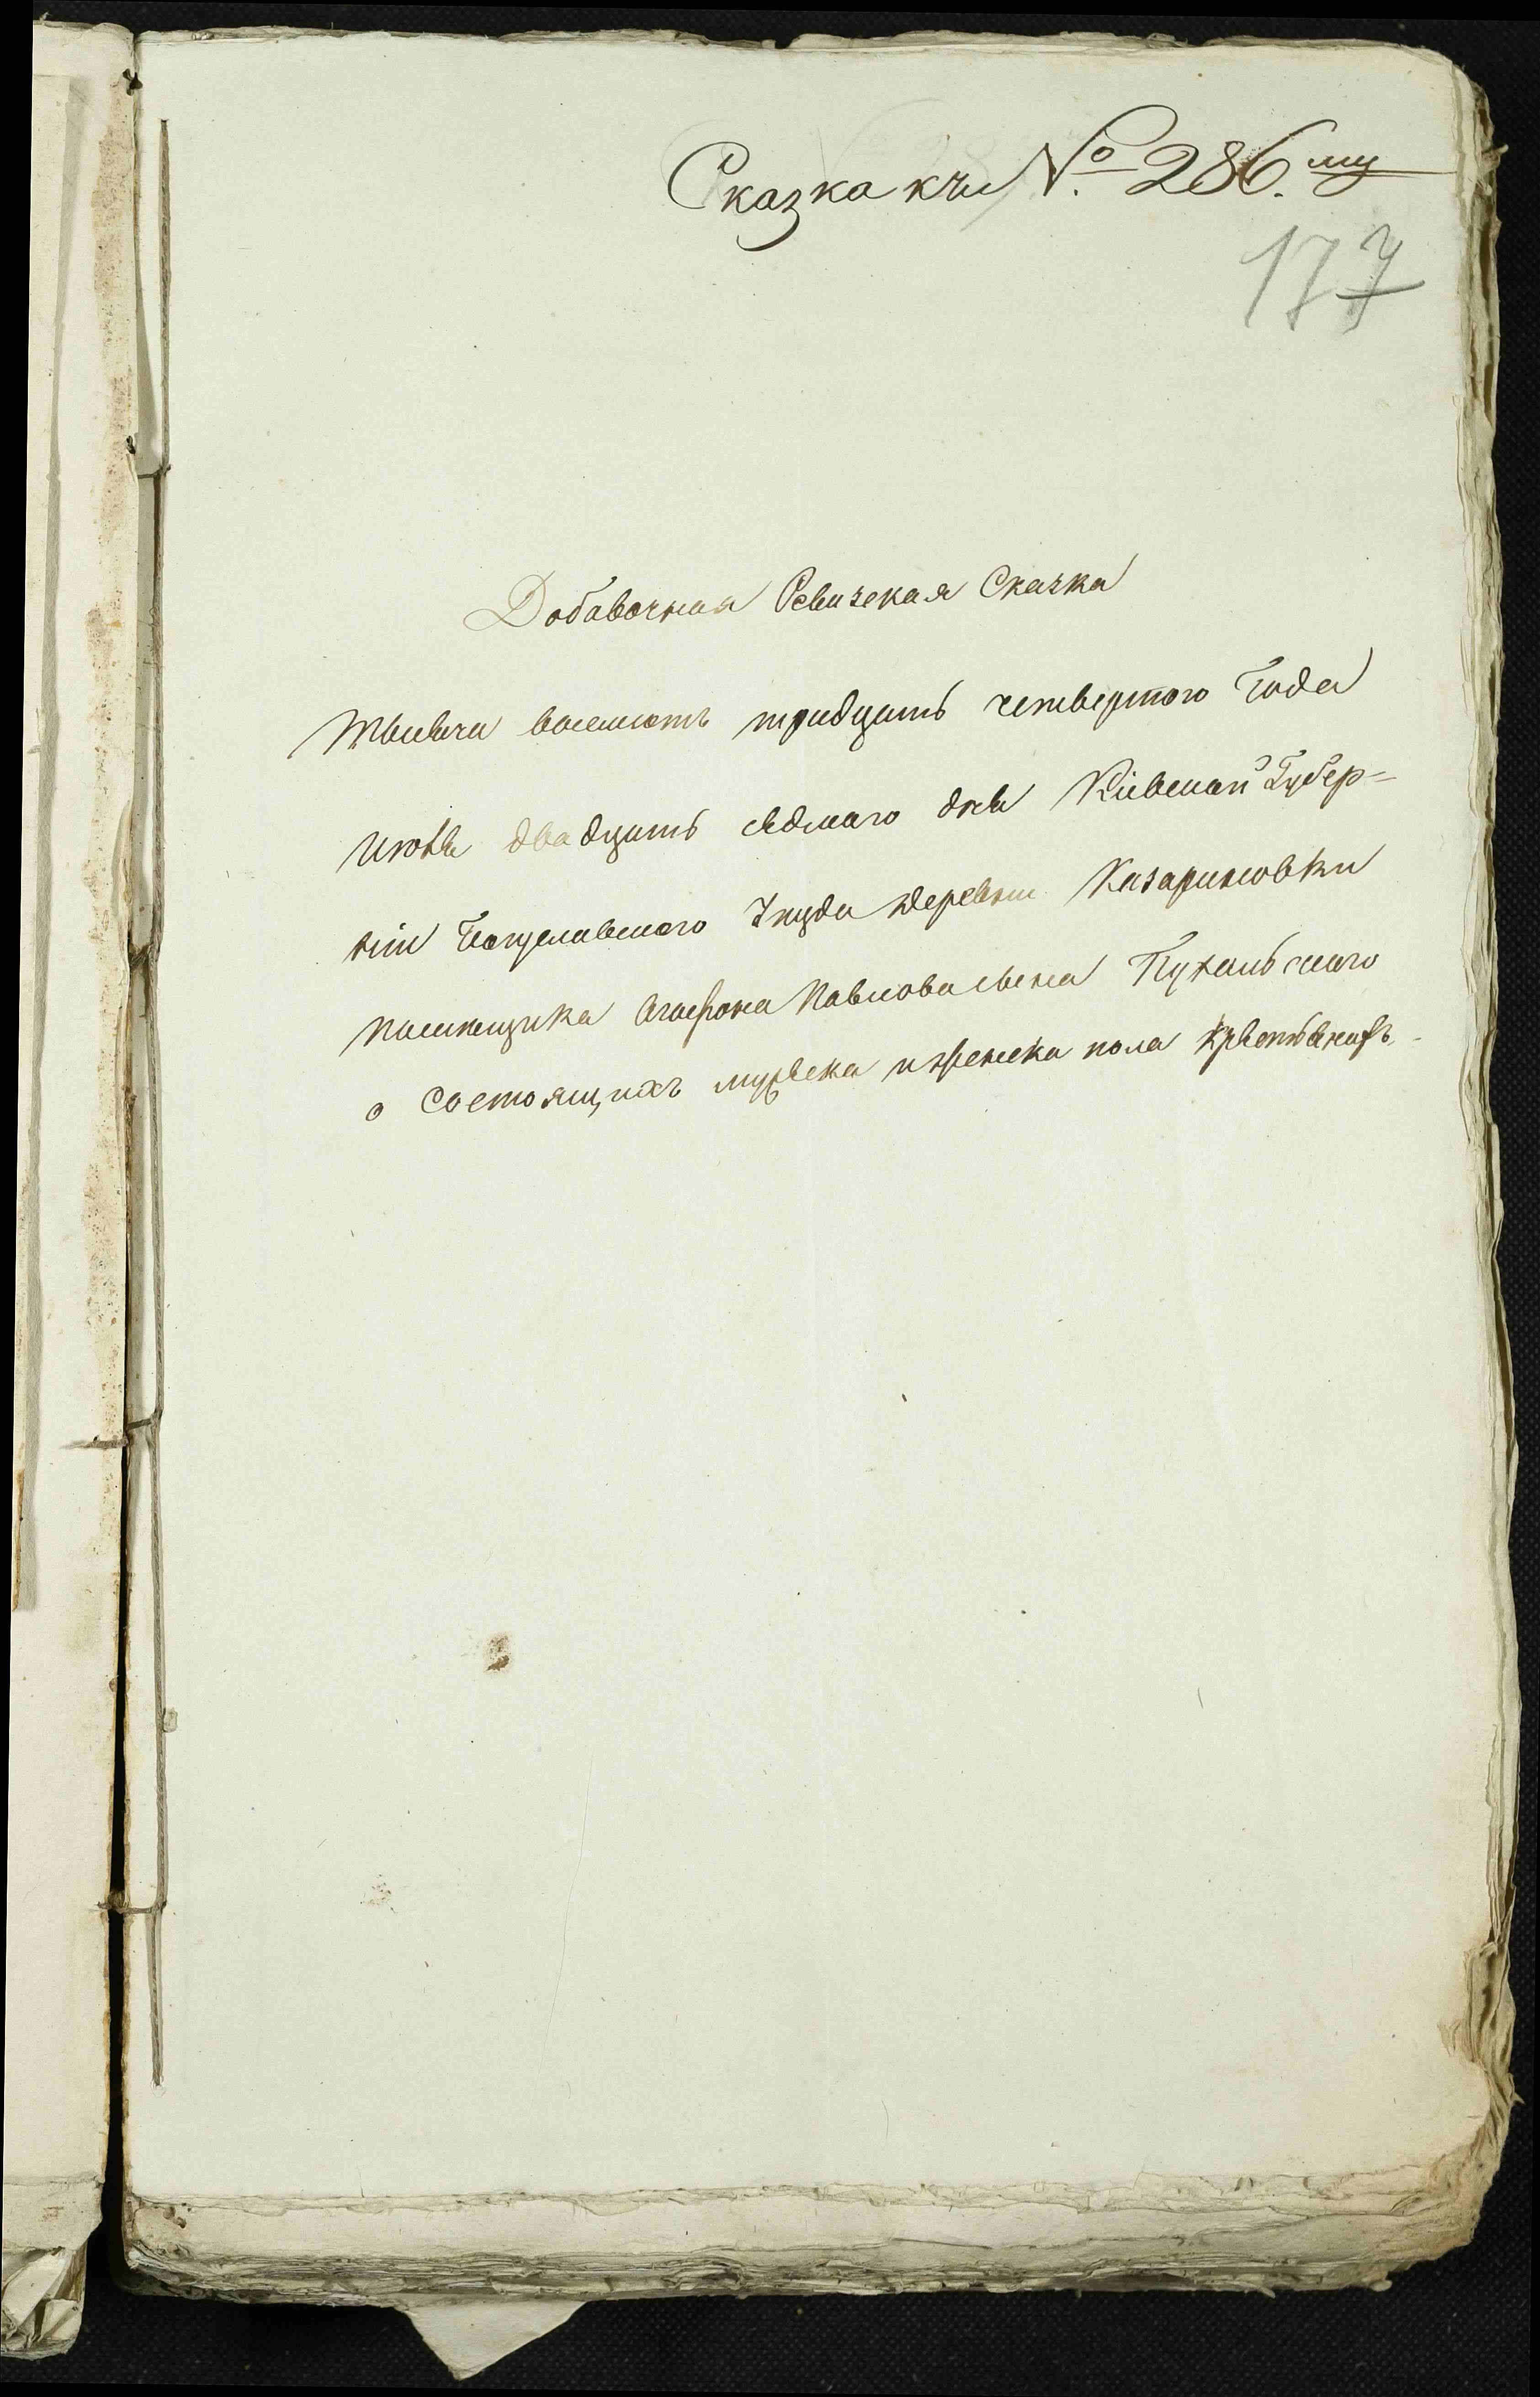 Сказка къ № 286.му
177
Добавочная Ревизская Сказка
Тысяча восемсотъ тридцать четвертого Года
Июня двадцать седмаго дня Кіевской Губер=
ніи Богуславского Уезда деревни Казариновки
помещика Агафона Павлова сына
о состоящихъ мужеска и женска пола крестьянахъ.